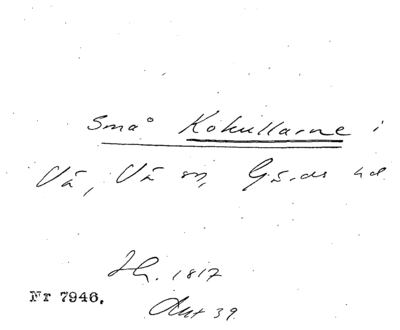 Små Kokullarne i
Vä, Vä sn, Gärds hd
Lh. 1817
Nr 7946.
Akt 39